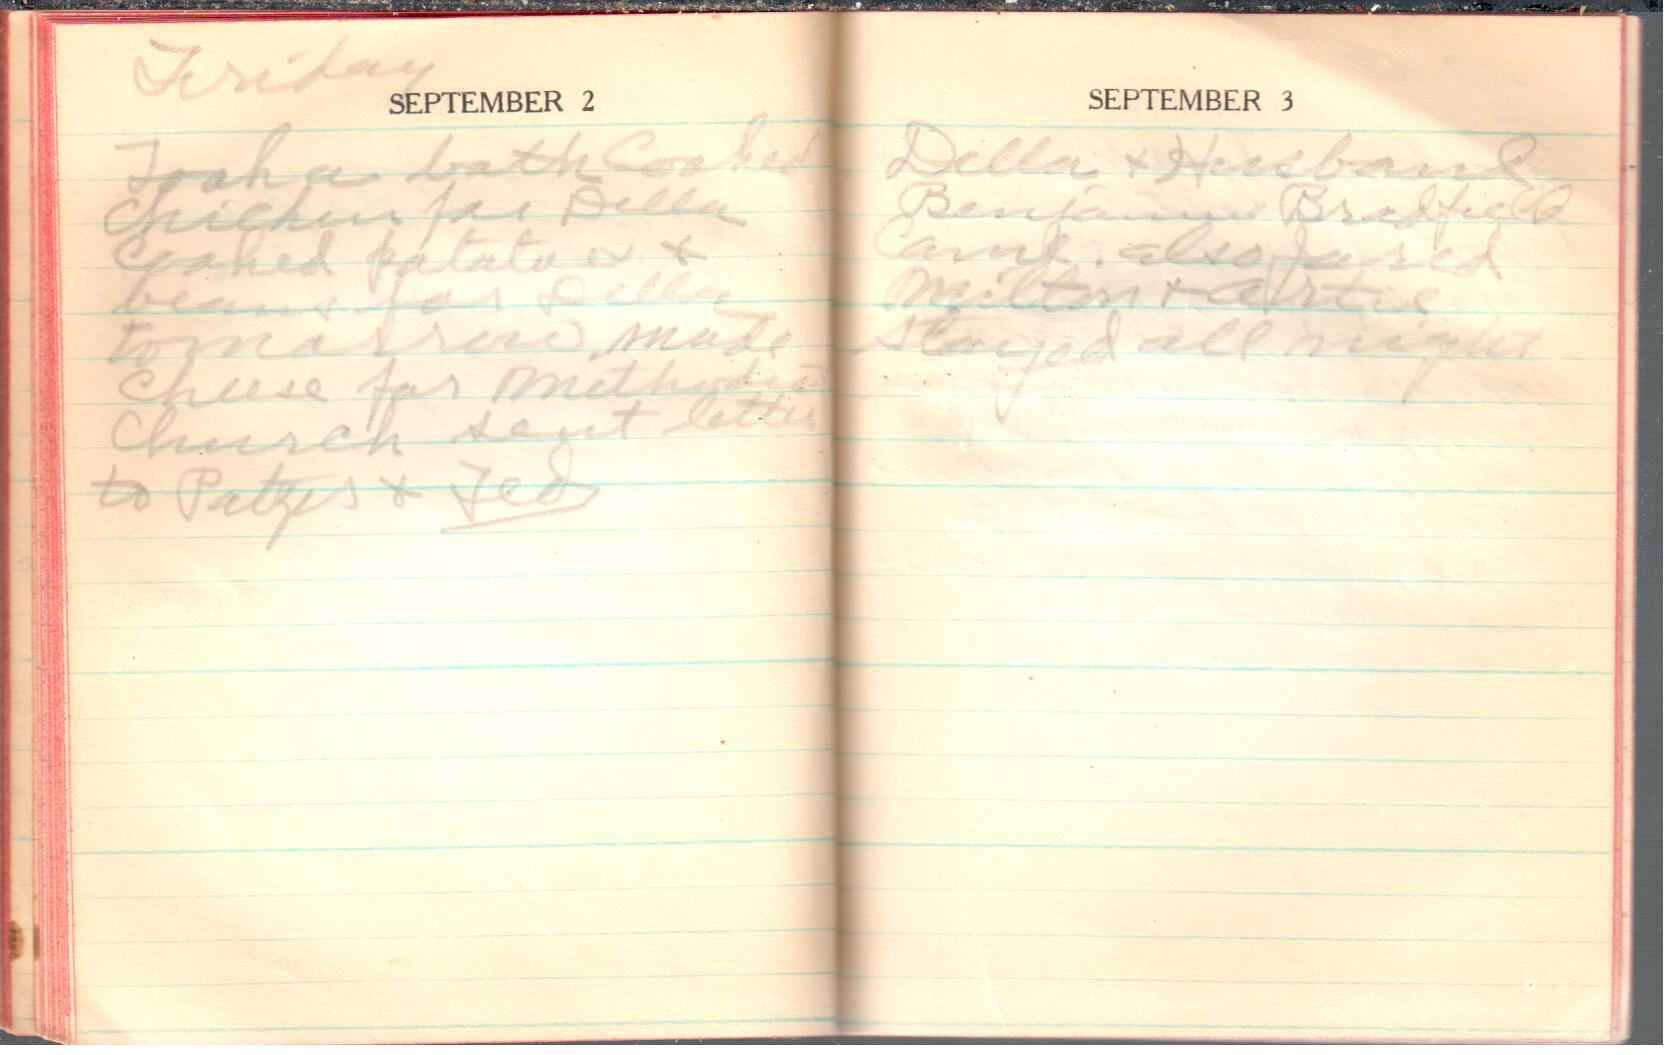 Friday
SEPTEMBER 2
Took a bath Cooked
Chicken for Della
Cooked potatoes +
beans for Della
tomorrow made
Cheese for Methodist
Church sent letter
to Patzes + Ted
SEPTEMBER 3
Della + Husband
Benjamin Bradfield
Came. also Jared
Milton + Artie
stayed all night